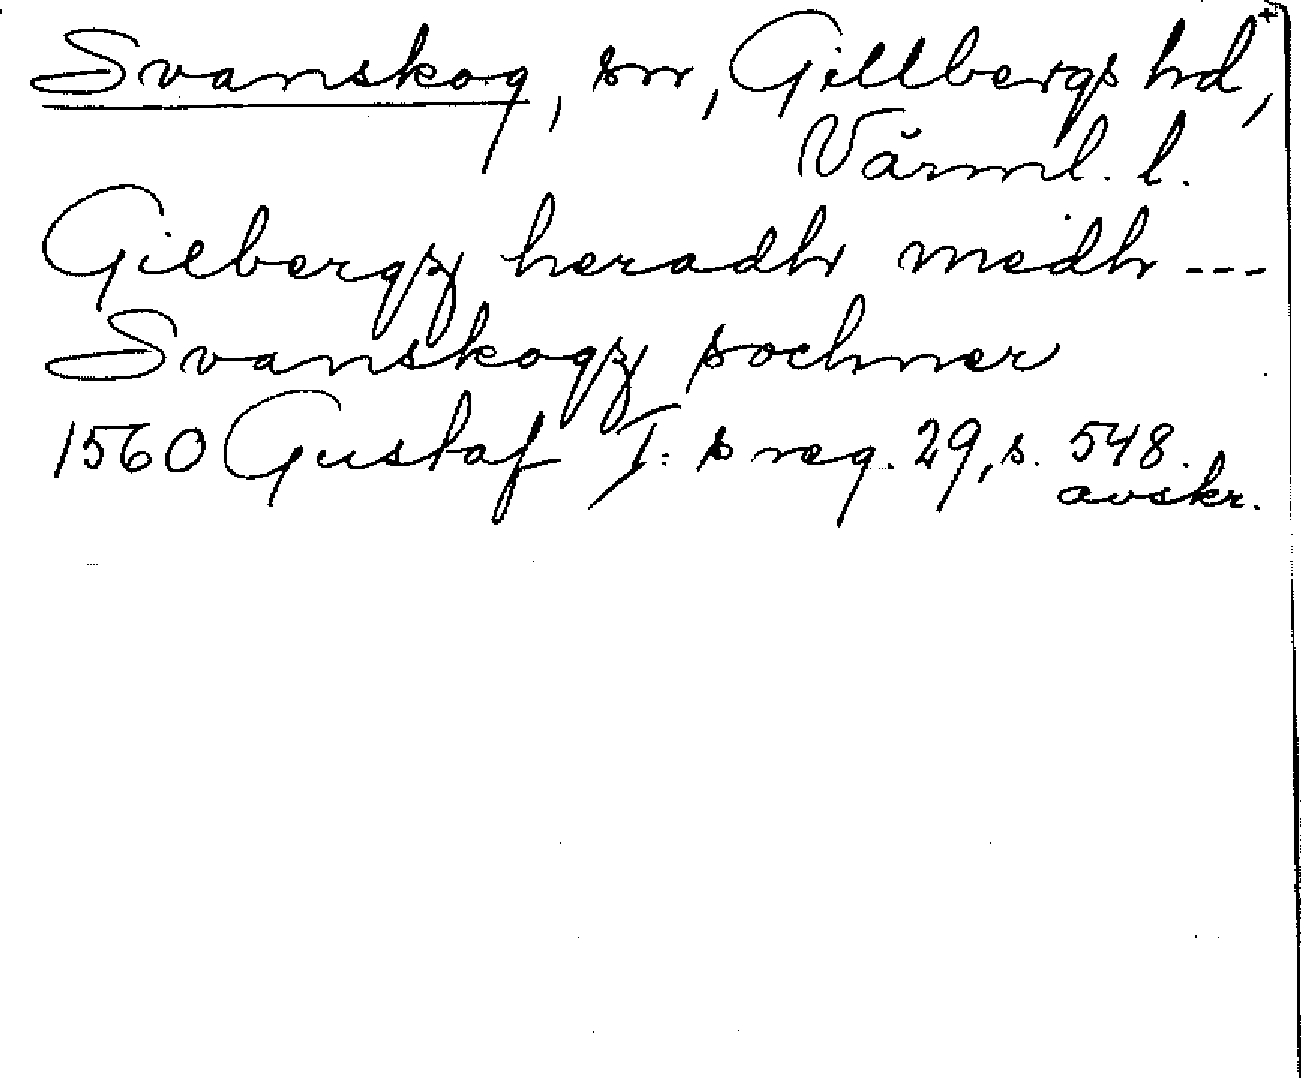 Svanskog, sn, Gillbergs hd,+
Värml. l.
Gilbergz heradh medh ---
Svanskogz sochner
1560 Gustaf I:s reg. 29, s. 548.
avskr.